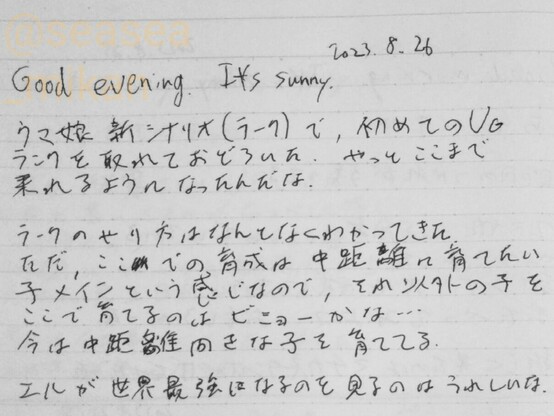 @seasea
_mikan
2023.8.26
Good evening. It's sunny.
ウマ娘新シナリオ(ラーク)で、初めてのUG
ランクを取れておどろいた. やっとここまで
来れるようになったんだな.
ラークのやり方はなんとなくわかってきた
ただ, ここでの育成は中距離に育てたい
子メインという感じなので, それ以外の子を
ここで育てるのはビミョーかな…
今は中距離向きな子を育ててる.
エルが世界最強になるのを見るのはうれしいな.